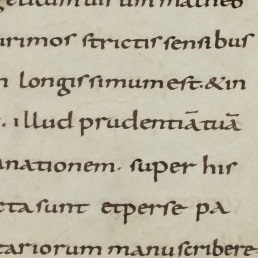 urimos strictis sensibus
n longissimum est. & in
. illud prudentiā tuā
nationem. super his
cta sunt et per se pa
tariorum manu scribere